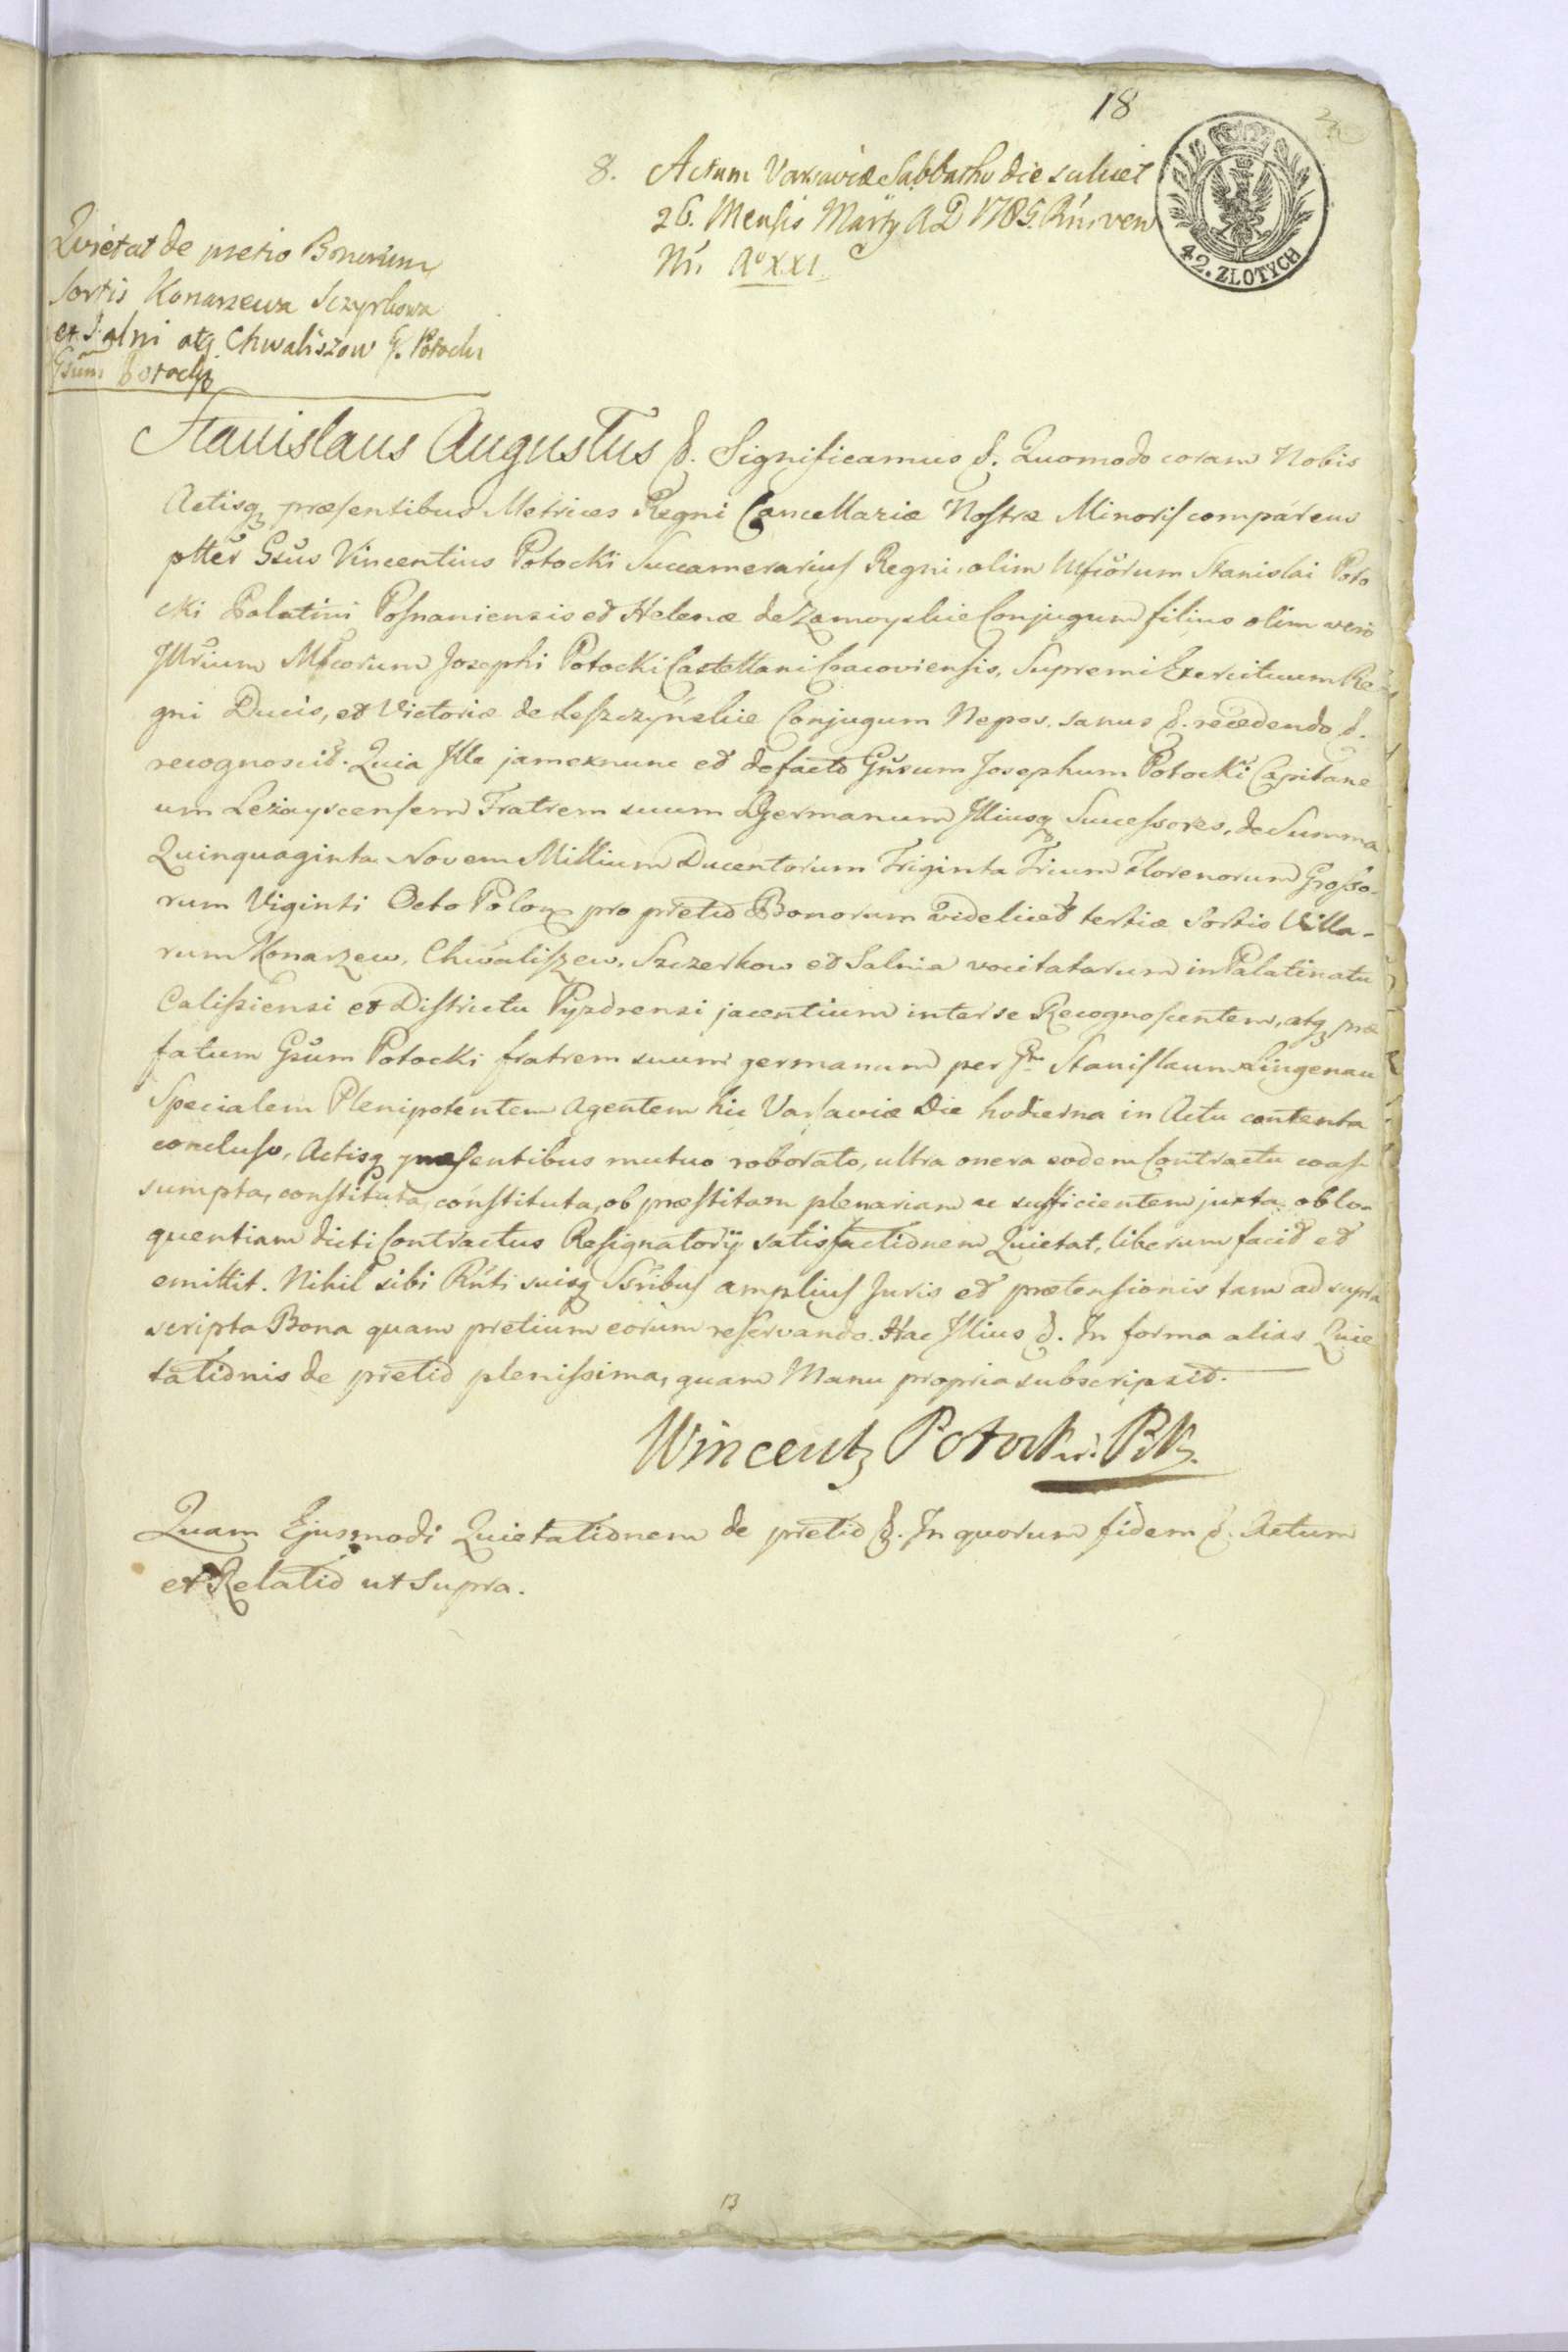 18
8. Actum Varsaviæ Sabbatho die scilicet
26. Mensis Martij AD 1785. Rúi. ven
Ni. Aº XXI
42. ZŁOTYCH
Quietat de pretio Bonorum
Sortis Konarzewa Sczyrkowa
et Salni atq Chwaliszow G. Potocki
Gsum Potocky
Stanislaus Augustus &. Significamus &. Quomodo coram Nobis
Actisq præsentibus Metrices Regni Cancellariæ Nostræ Minoris comparens
ptter Gsus Vincentius Potocki Succamerarius Regni, olim Mficorum Stanislai Poto
cki Palatini Posnaniensis et Helenæ de Zamoyskie Conjugum filius olim vero
Illrium Mficorum Josephi Potocki Castellani Cracoviensis, Supremi Exercituum Re-
gni Ducis, et Victoriæ de Leszczyńskie Conjugum Nepos. sanus &. recedendo &.
recognoscit. Quia Ille jam exnunc et de facto Gnrsum Josephum Potocki Capitane
um Leżayscensem Fratrem suum Germanum Illiusq Successores, de Summa
Quinquaginta Novem Millium Ducentorum Triginta Trium Florenorum Grosso-
rum Viginti Octo Polon pro pretio Bonorum videlicet tertiæ Sortis Villa-
rum Konarzew, Chwaliszew, Szczerkow et Salnia vocitatarum in Palatinatu
Calissiensi et Districtu Pyzdrensi jacentium inter se Recognoscentem, atq præ
fatum Gsum Potocki fratrem suum germanum per G. Stanislaum Lingenau
Specialem Plenipotentem Agentem hic Varsaviæ Die hodierna in Actu contenta
concluso, Actisq præsentibus mutuo roborato, ultra onera eodem Contractu coas-
sumpta, constituta, constituta, ob præstitam plenariam ac sufficientem juxta oblo-
quentiam dicti Contractus Resignatorij satisfactionem Quietat, liberum facit et
emittit. Nihil sibi Rnti suisq Ssribus amplius Juris et prætensionis tam ad supra
scripta Bona quam pretium eorum reservando. Hac Illius &. In forma alias Quie
tationis de pretio plenissima, quam Manu propria subscripsit.
Wincenty Potocki. PK.
Quam Ejusmodi Quietationem de pretio &. In quorum fidem &. Actum
et Relatio ut Supra.
13